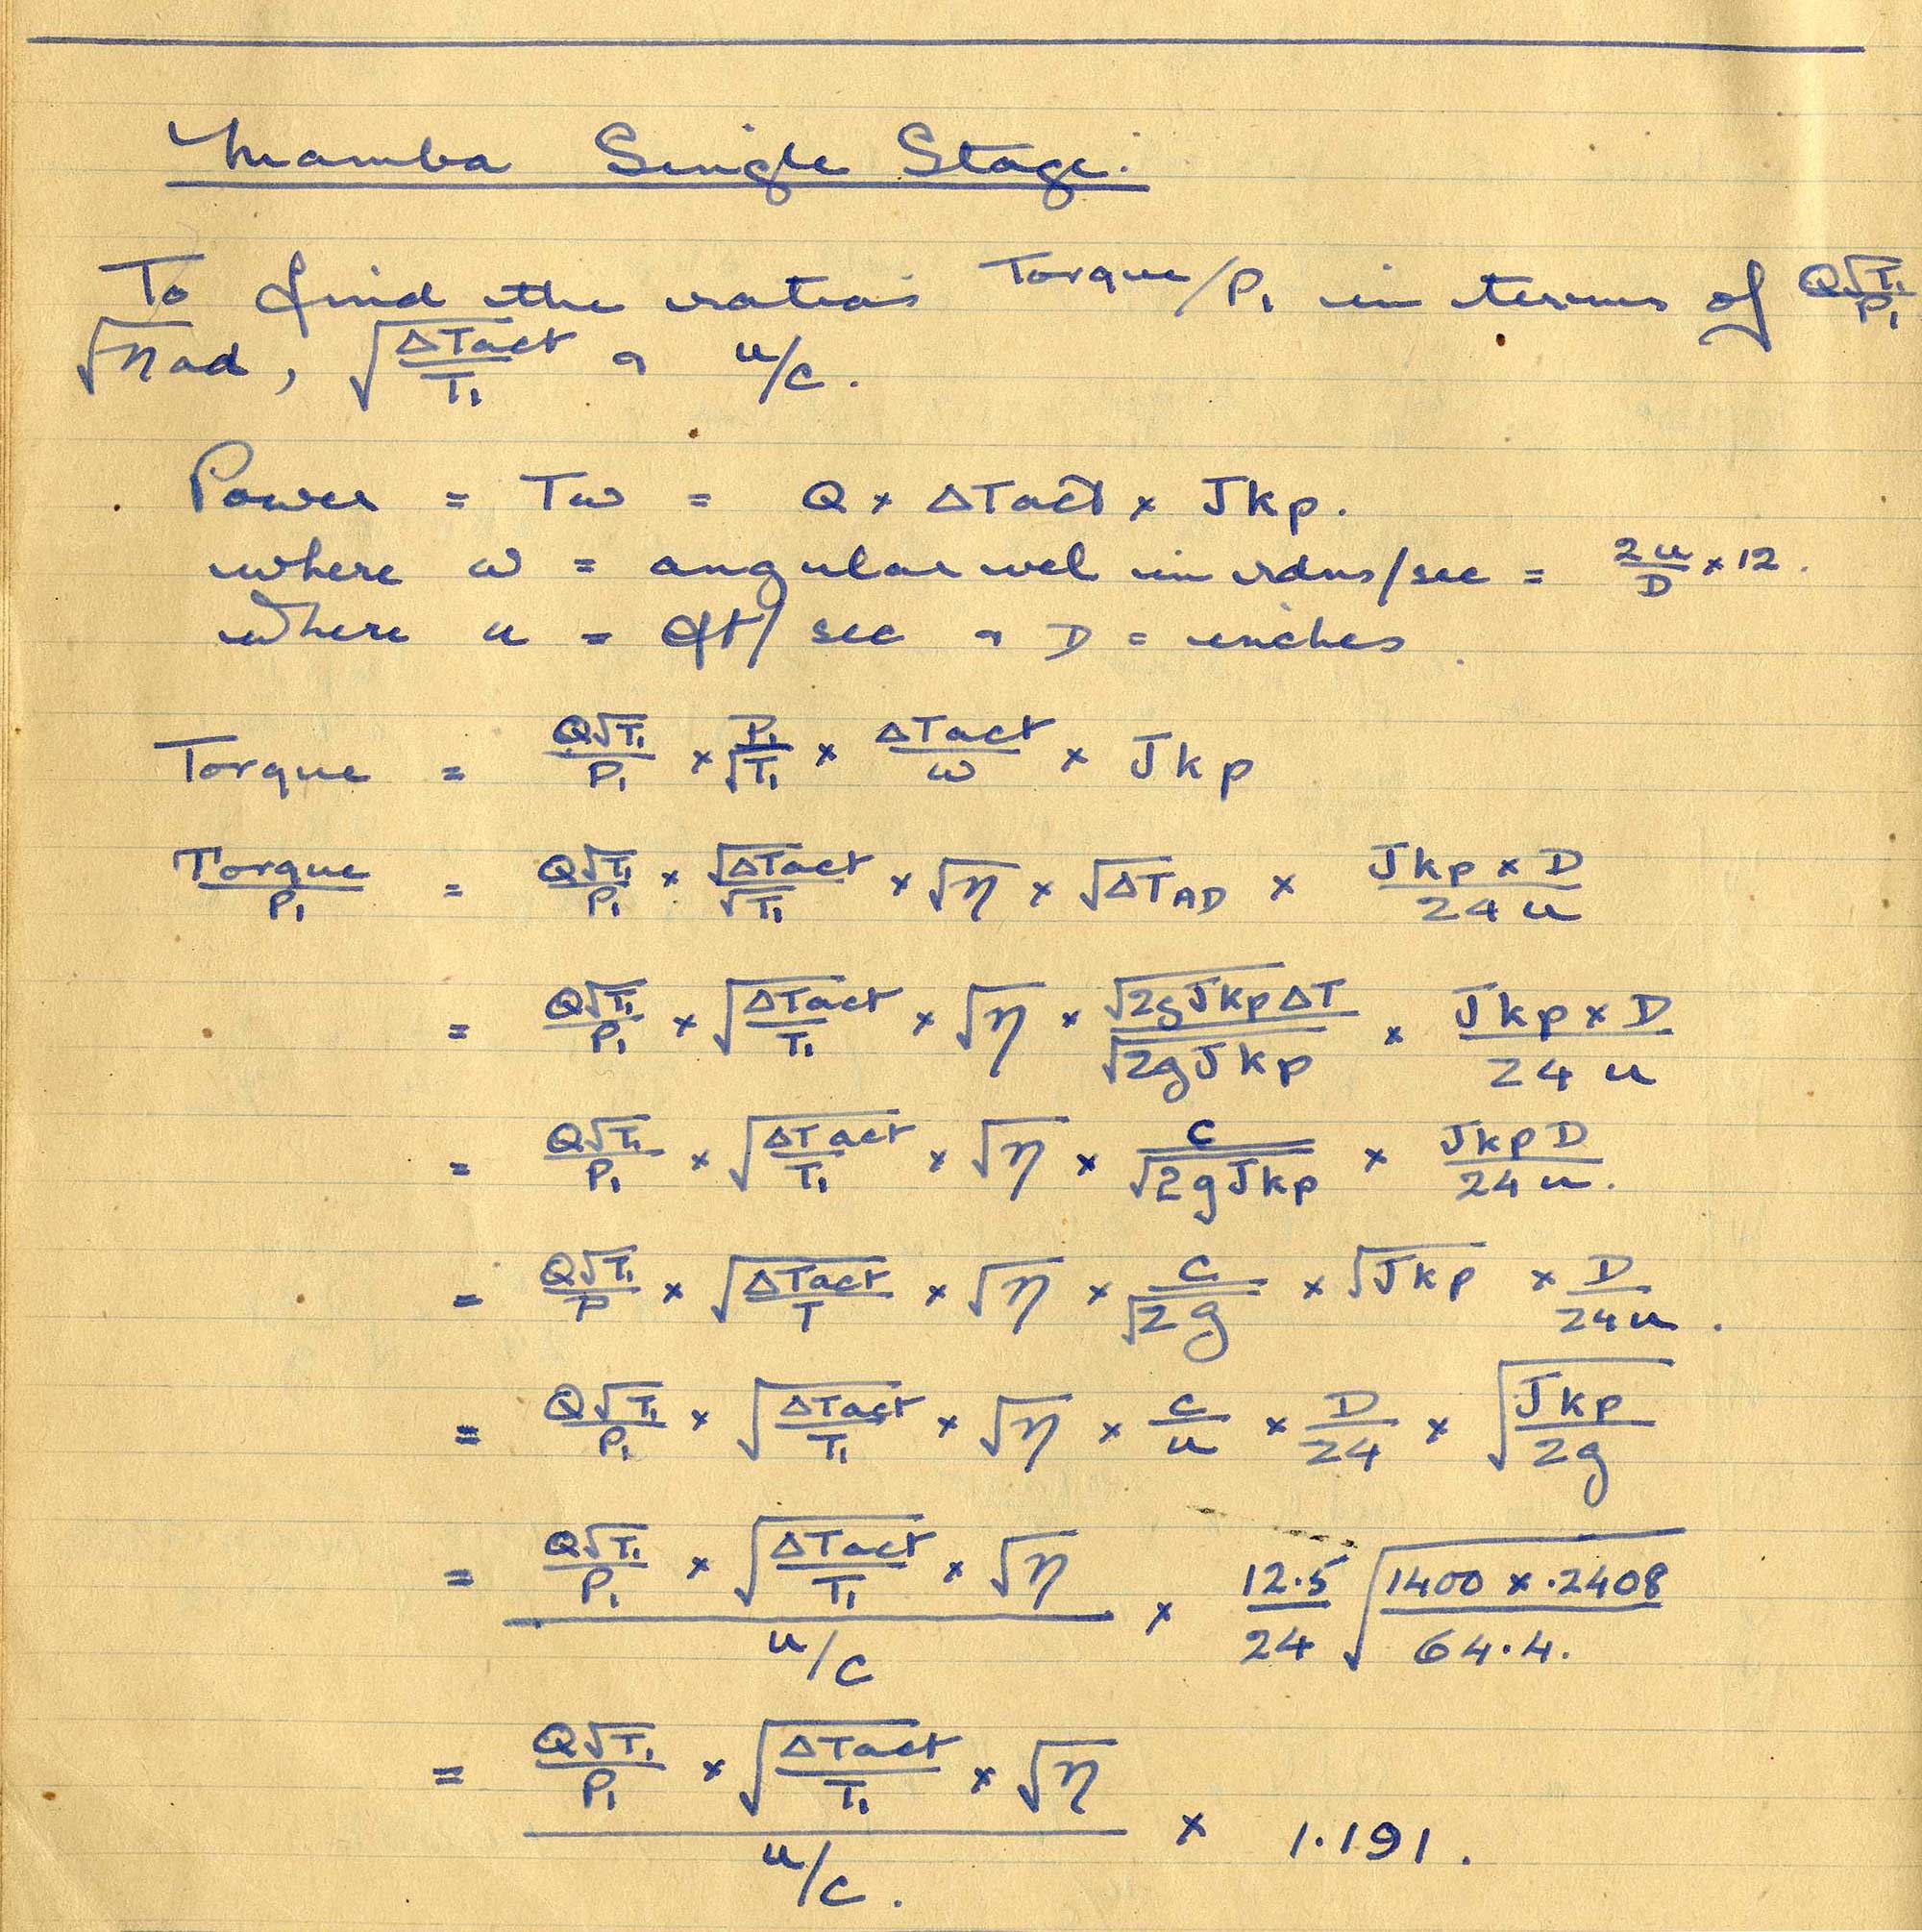 Mamba Single Stage.
To find the ratio Torque/P₁ in terms of Q√T₁/P₁
√ηad, √(ΔTact/T₁) & u/c.
Power = Tω = Q × ΔTact × Jkp.
where ω = angular vel in rdns/sec = 2u/D × 12.
where u = ft/sec & D = inches
Torque = Q√T₁/P₁ × P₁/√T₁ × ΔTact/ω × Jkp
Torque/P₁ = Q√T₁/P₁ × √ΔTact/√T₁ × √η × √ΔTAD × Jkp × D/24u
= Q√T₁/P₁ × √(ΔTact/T₁) × √η × √(2gJkpΔT)/√(2gJkp) × Jkp × D/24u
= Q√T₁/P₁ × √(ΔTact/T₁) × √η × c/√(2gJkp) × JkpD/24u.
= Q√T₁/P × √(ΔTact/T) × √η × c/√2g × √Jkp × D/24u.
= Q√T₁/P₁ × √(ΔTact/T₁) × √η × c/u × D/24 × √(Jkp/2g)
= (Q√T₁/P₁ × √(ΔTact/T₁) × √η)/(u/c) × 12.5/24 √(1400 × .2408/64.4.)
= (Q√T₁/P₁ × √(ΔTact/T₁) × √η)/(u/c.) × 1.191.